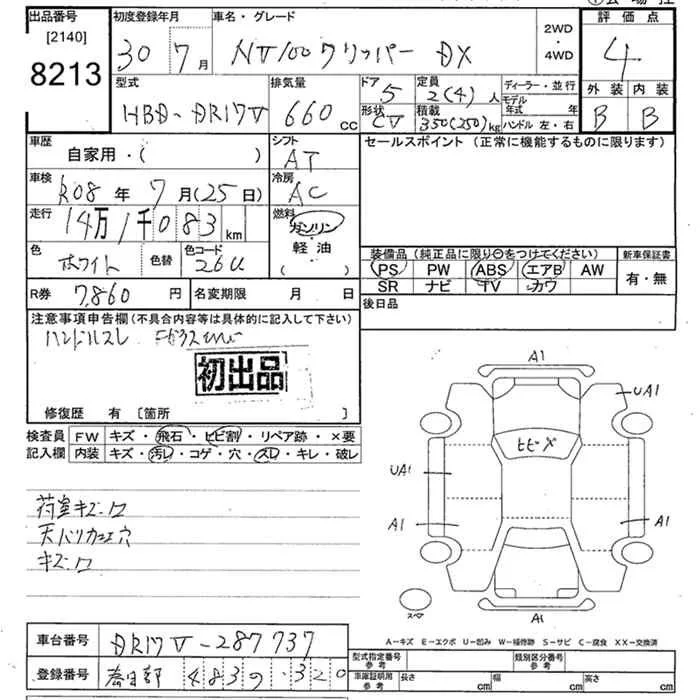 出品番号
[2140]
8213
初度登録年月
30 7月
車名・グレード
NV100クリッパー DX
2WD
・
4WD
評価点
4
型式
HBD-DR17V
排気量
660 cc
ドア
5
定員
2(4)人
形状
CV
積載
350(250)kg
ディーラー・並行
モデル年式 年
ハンドル 左・右
外装 内装
B B
車歴
自家用・( )
シフト
AT
セールスポイント (正常に機能するものに限ります)
車検
R08年 7月(25日)
冷房
AC
走行
14万1千083km
燃料
ガソリン
軽油
( )
色
ホワイト
色替
色コード
26U
装備品(純正品に限り○をつけてください)
新車保証書
PS PW ABS エアB AW
SR ナビ TV カワ
有・無
R券
7,860円
名変期限 月 日
後日品
注意事項申告欄(不具合内容等は具体的に記入して下さい)
ハンドルスレ
初出品
修復歴 有 [箇所 ]
検査員
記入欄
FW キズ・飛石・ヒビ割・リペア跡・×要
内装 キズ・汚レ・コゲ・穴・スレ・キレ・破レ
荷室キズ
キズ
A1
UA1
ヒビ
UA1
A1
A1
A1
スペア
A-キズ E-エクボ U-凹み W-補修跡 S-サビ C-腐食 XX-交換済
車台番号
DR17V-287737
登録番号
春日部 483 320
型式指定番号
参考
類別区分番号
参考
車庫証明用
参考
長さ cm
幅 cm
高さ cm